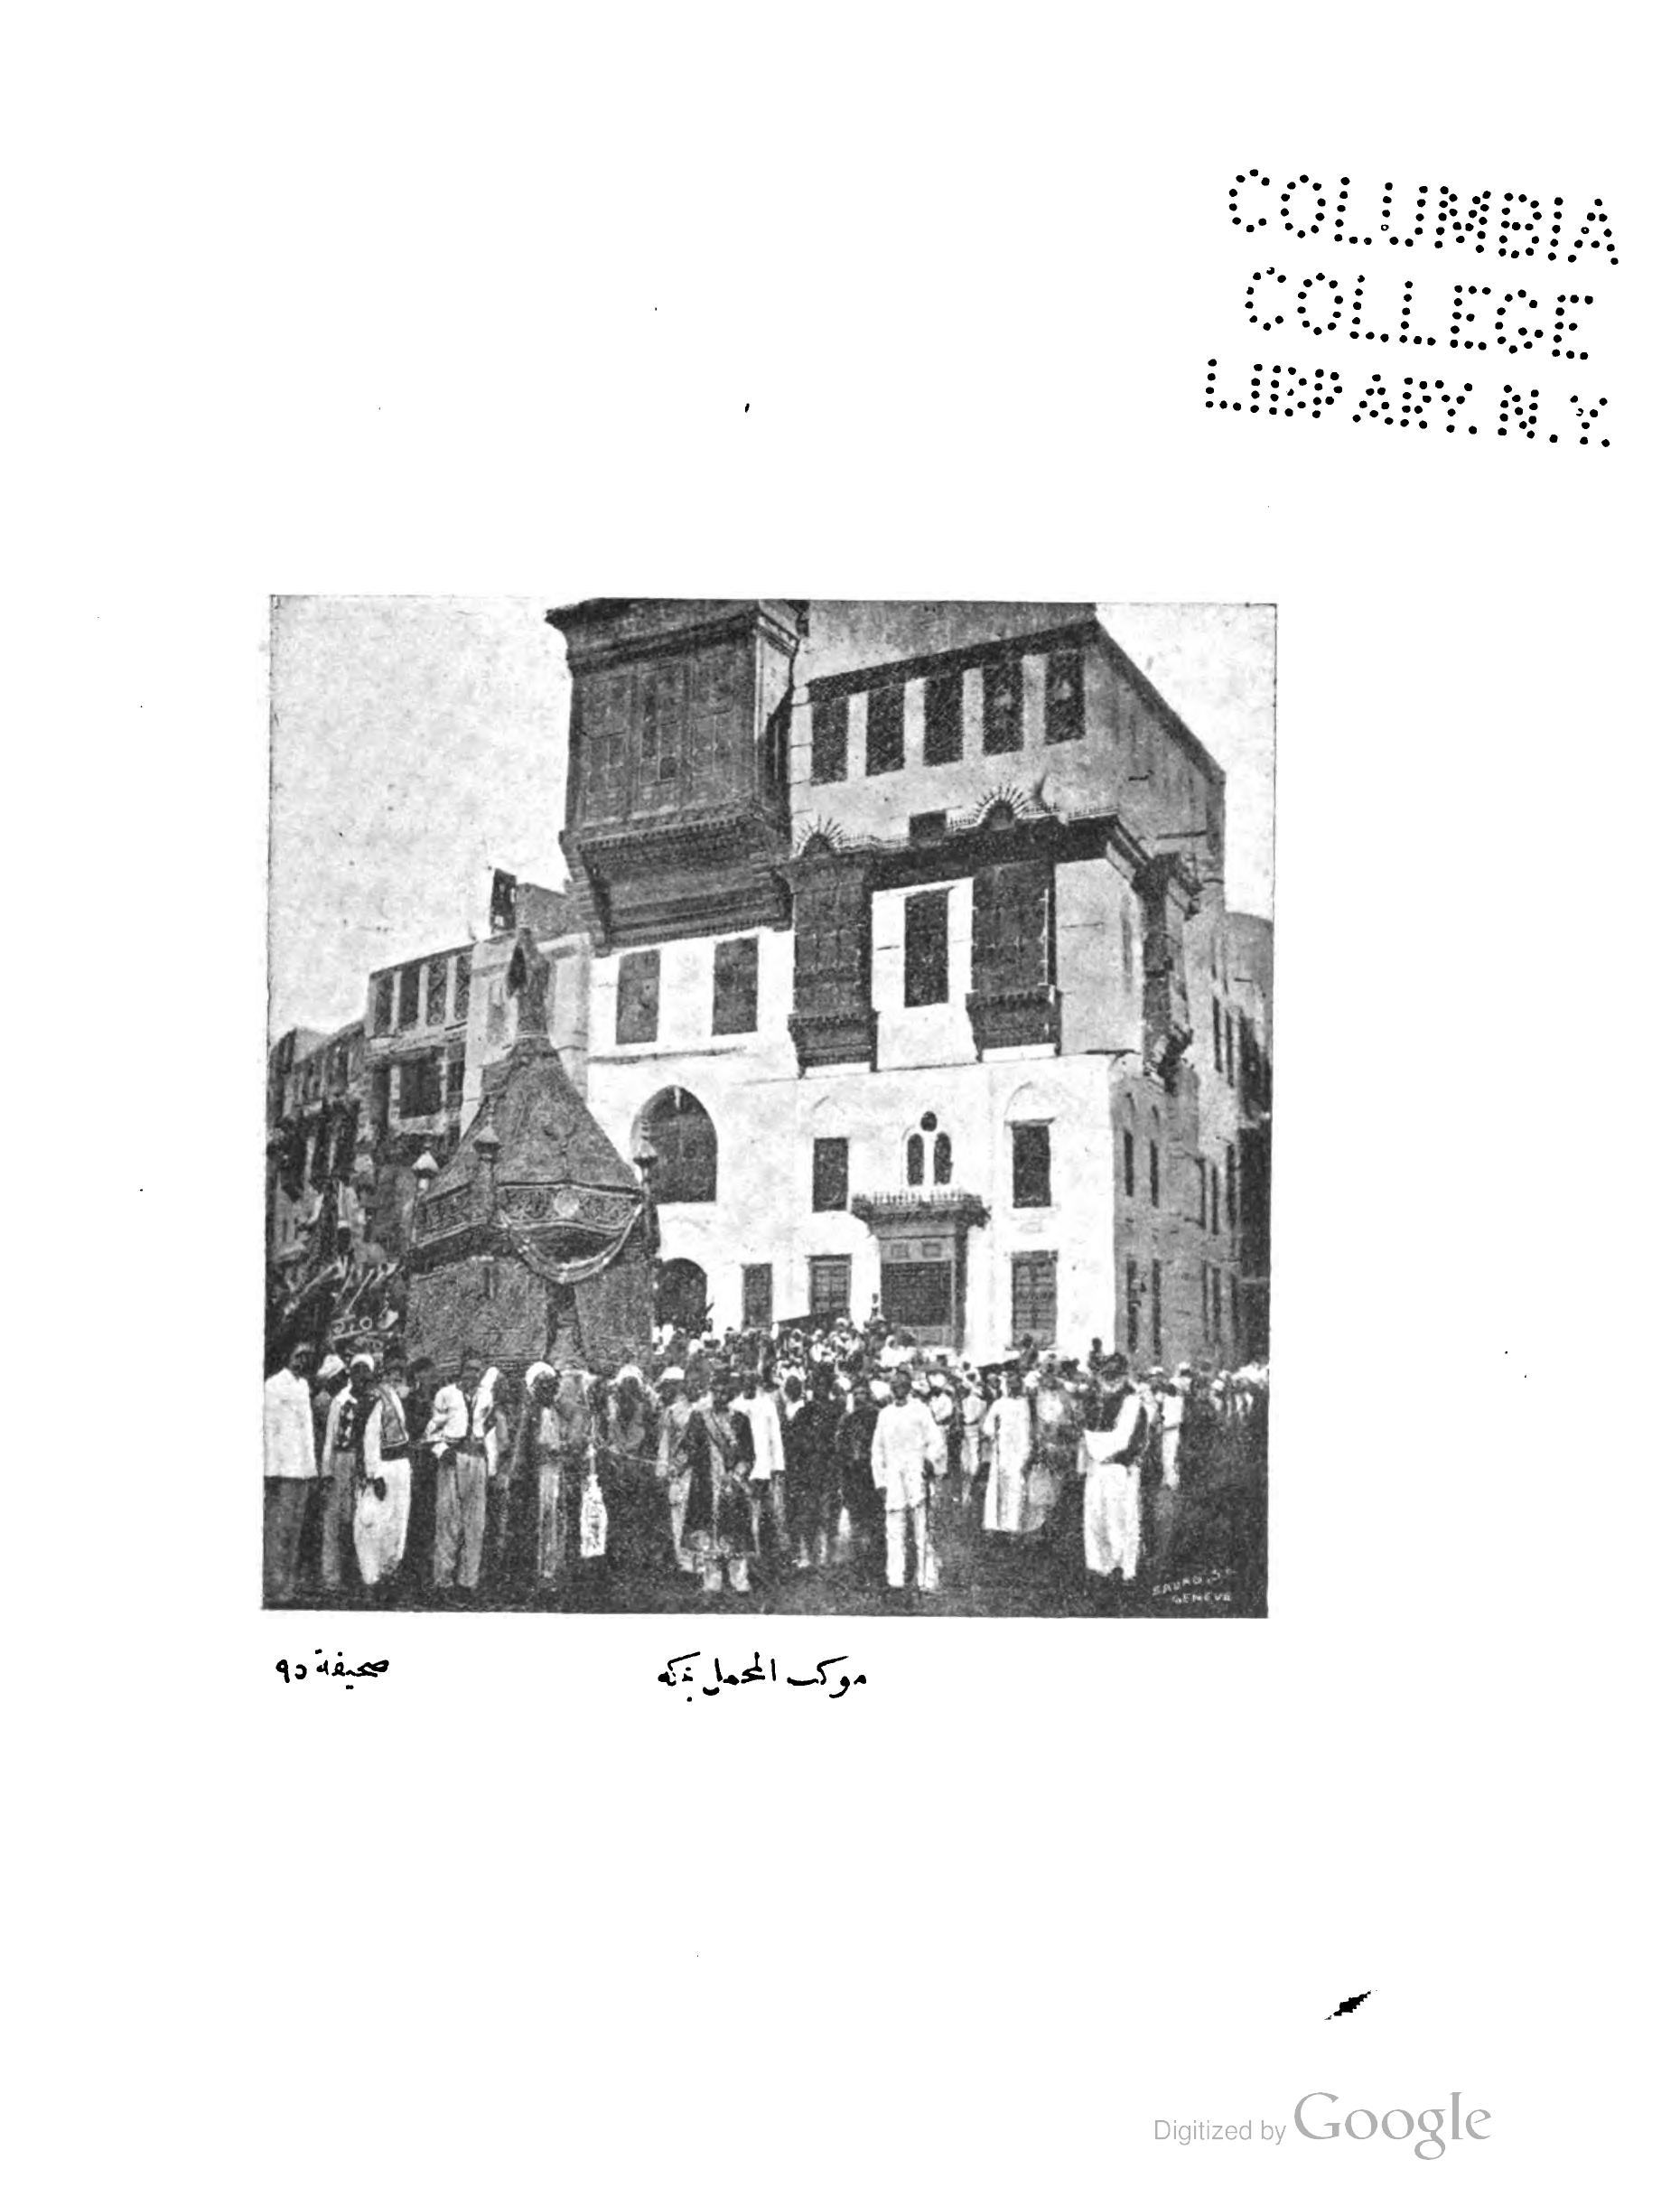 COLUMBIA
COLLEGE
LIBRARY. N.Y.
GENÈVE
موكب المحمل بمكه
صحيفة ٩٥
Digitized by Google